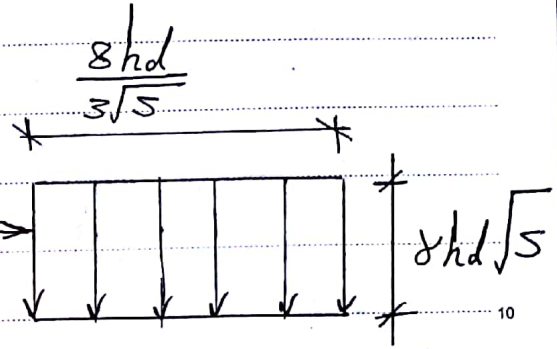 8hd
3√5
γhd√5
10